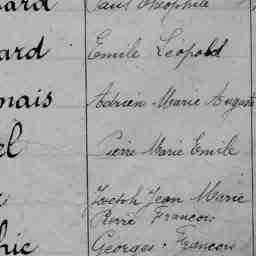 ard Paul Théophile
ard Emile Léopold
mais Adrien Marie Auguste
el Pierre Marie Emile
Joseph Jean Marie
Pierre Francois
hic Georges Francois